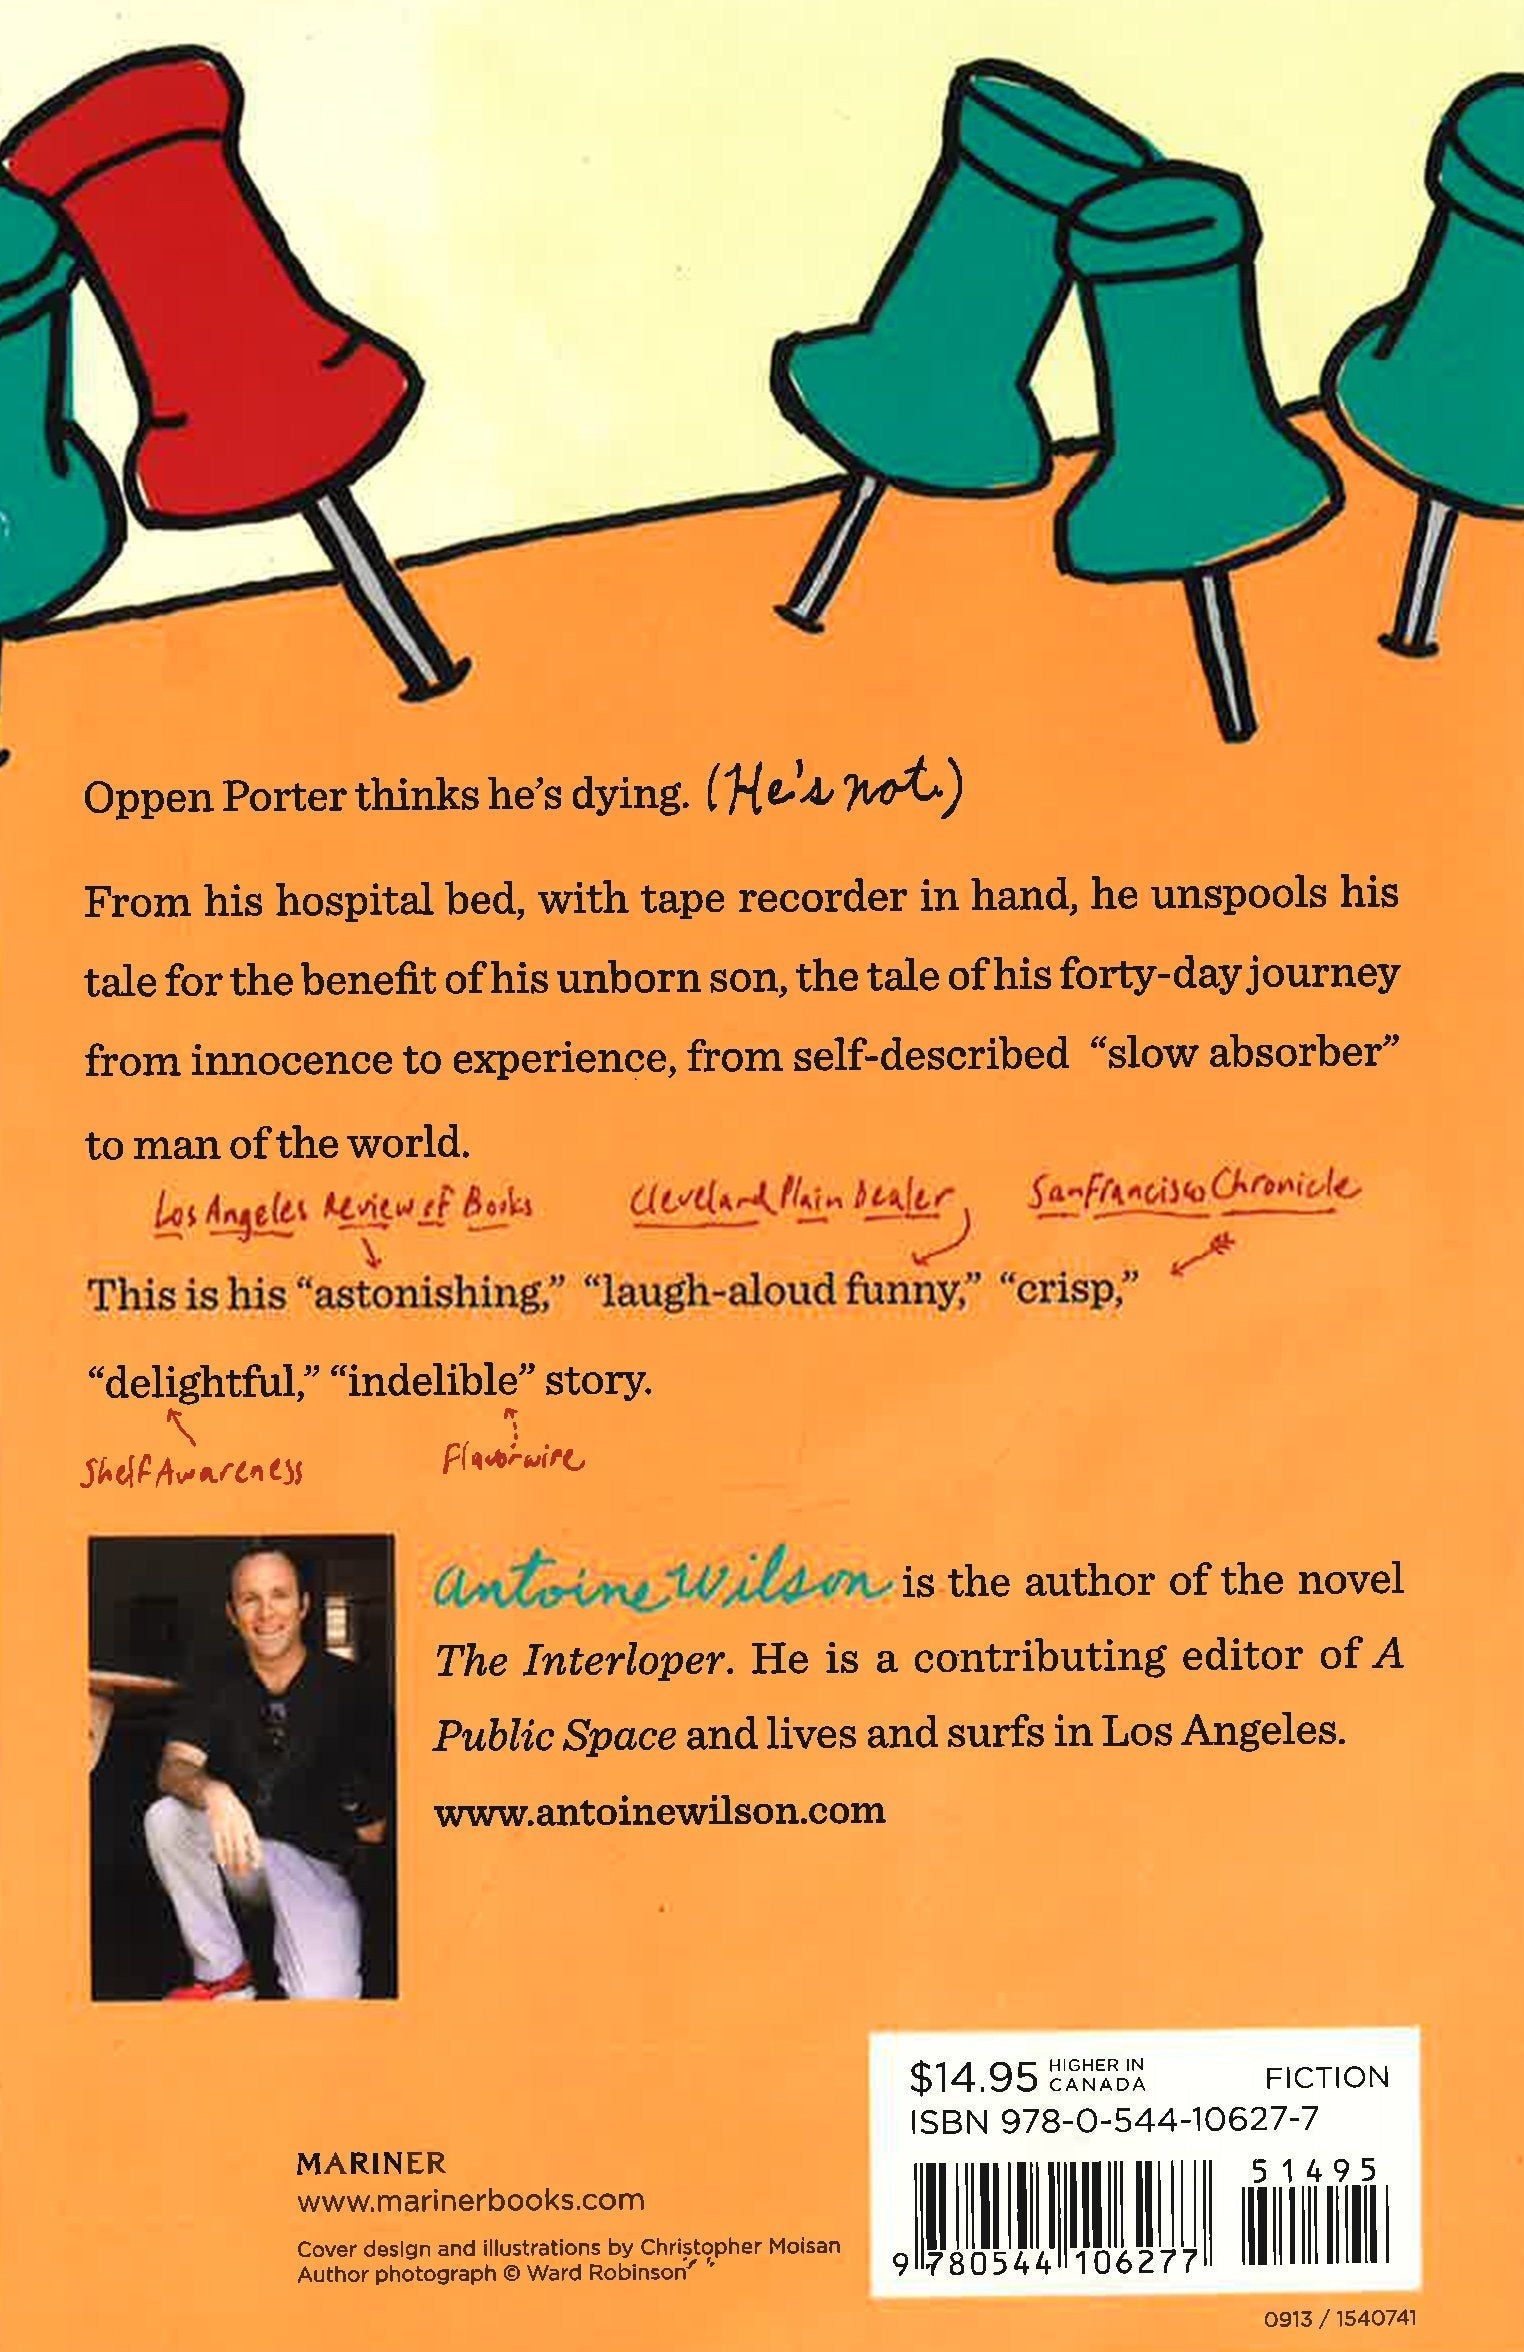 Oppen Porter thinks he's dying. (He's not.)
From his hospital bed, with tape recorder in hand, he unspools his
tale for the benefit of his unborn son, the tale of his forty-day journey
from innocence to experience, from self-described “slow absorber”
to man of the world.
Los Angeles Review of Books Cleveland Plain Dealer San Francisco Chronicle
This is his “astonishing,” “laugh-aloud funny,” “crisp,”
“delightful,” “indelible” story.
Shelf Awareness Flavorwire
Antoine Wilson is the author of the novel
The Interloper. He is a contributing editor of A
Public Space and lives and surfs in Los Angeles.
www.antoinewilson.com
$14.95 HIGHER IN CANADA FICTION
ISBN 978-0-544-10627-7
51495
9 780544 106277
MARINER
www.marinerbooks.com
Cover design and illustrations by Christopher Moisan
Author photograph © Ward Robinson
0913 / 1540741